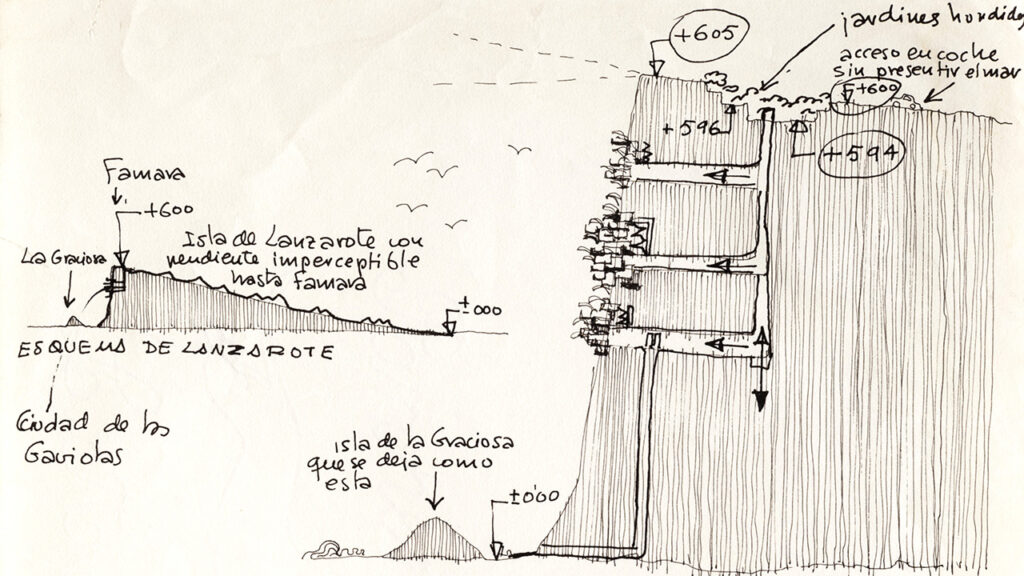 +605
jardines hundidos
acceso en coche
sin presentir el mar
+600
+596
+594
Famara
+600
La Graciosa
Isla de Lanzarote con
pendiente imperceptible
hasta famara
±000
ESQUEMA DE LANZAROTE
Ciudad de las
Gaviotas
isla de la Graciosa
que se deja como
esta
±0'00